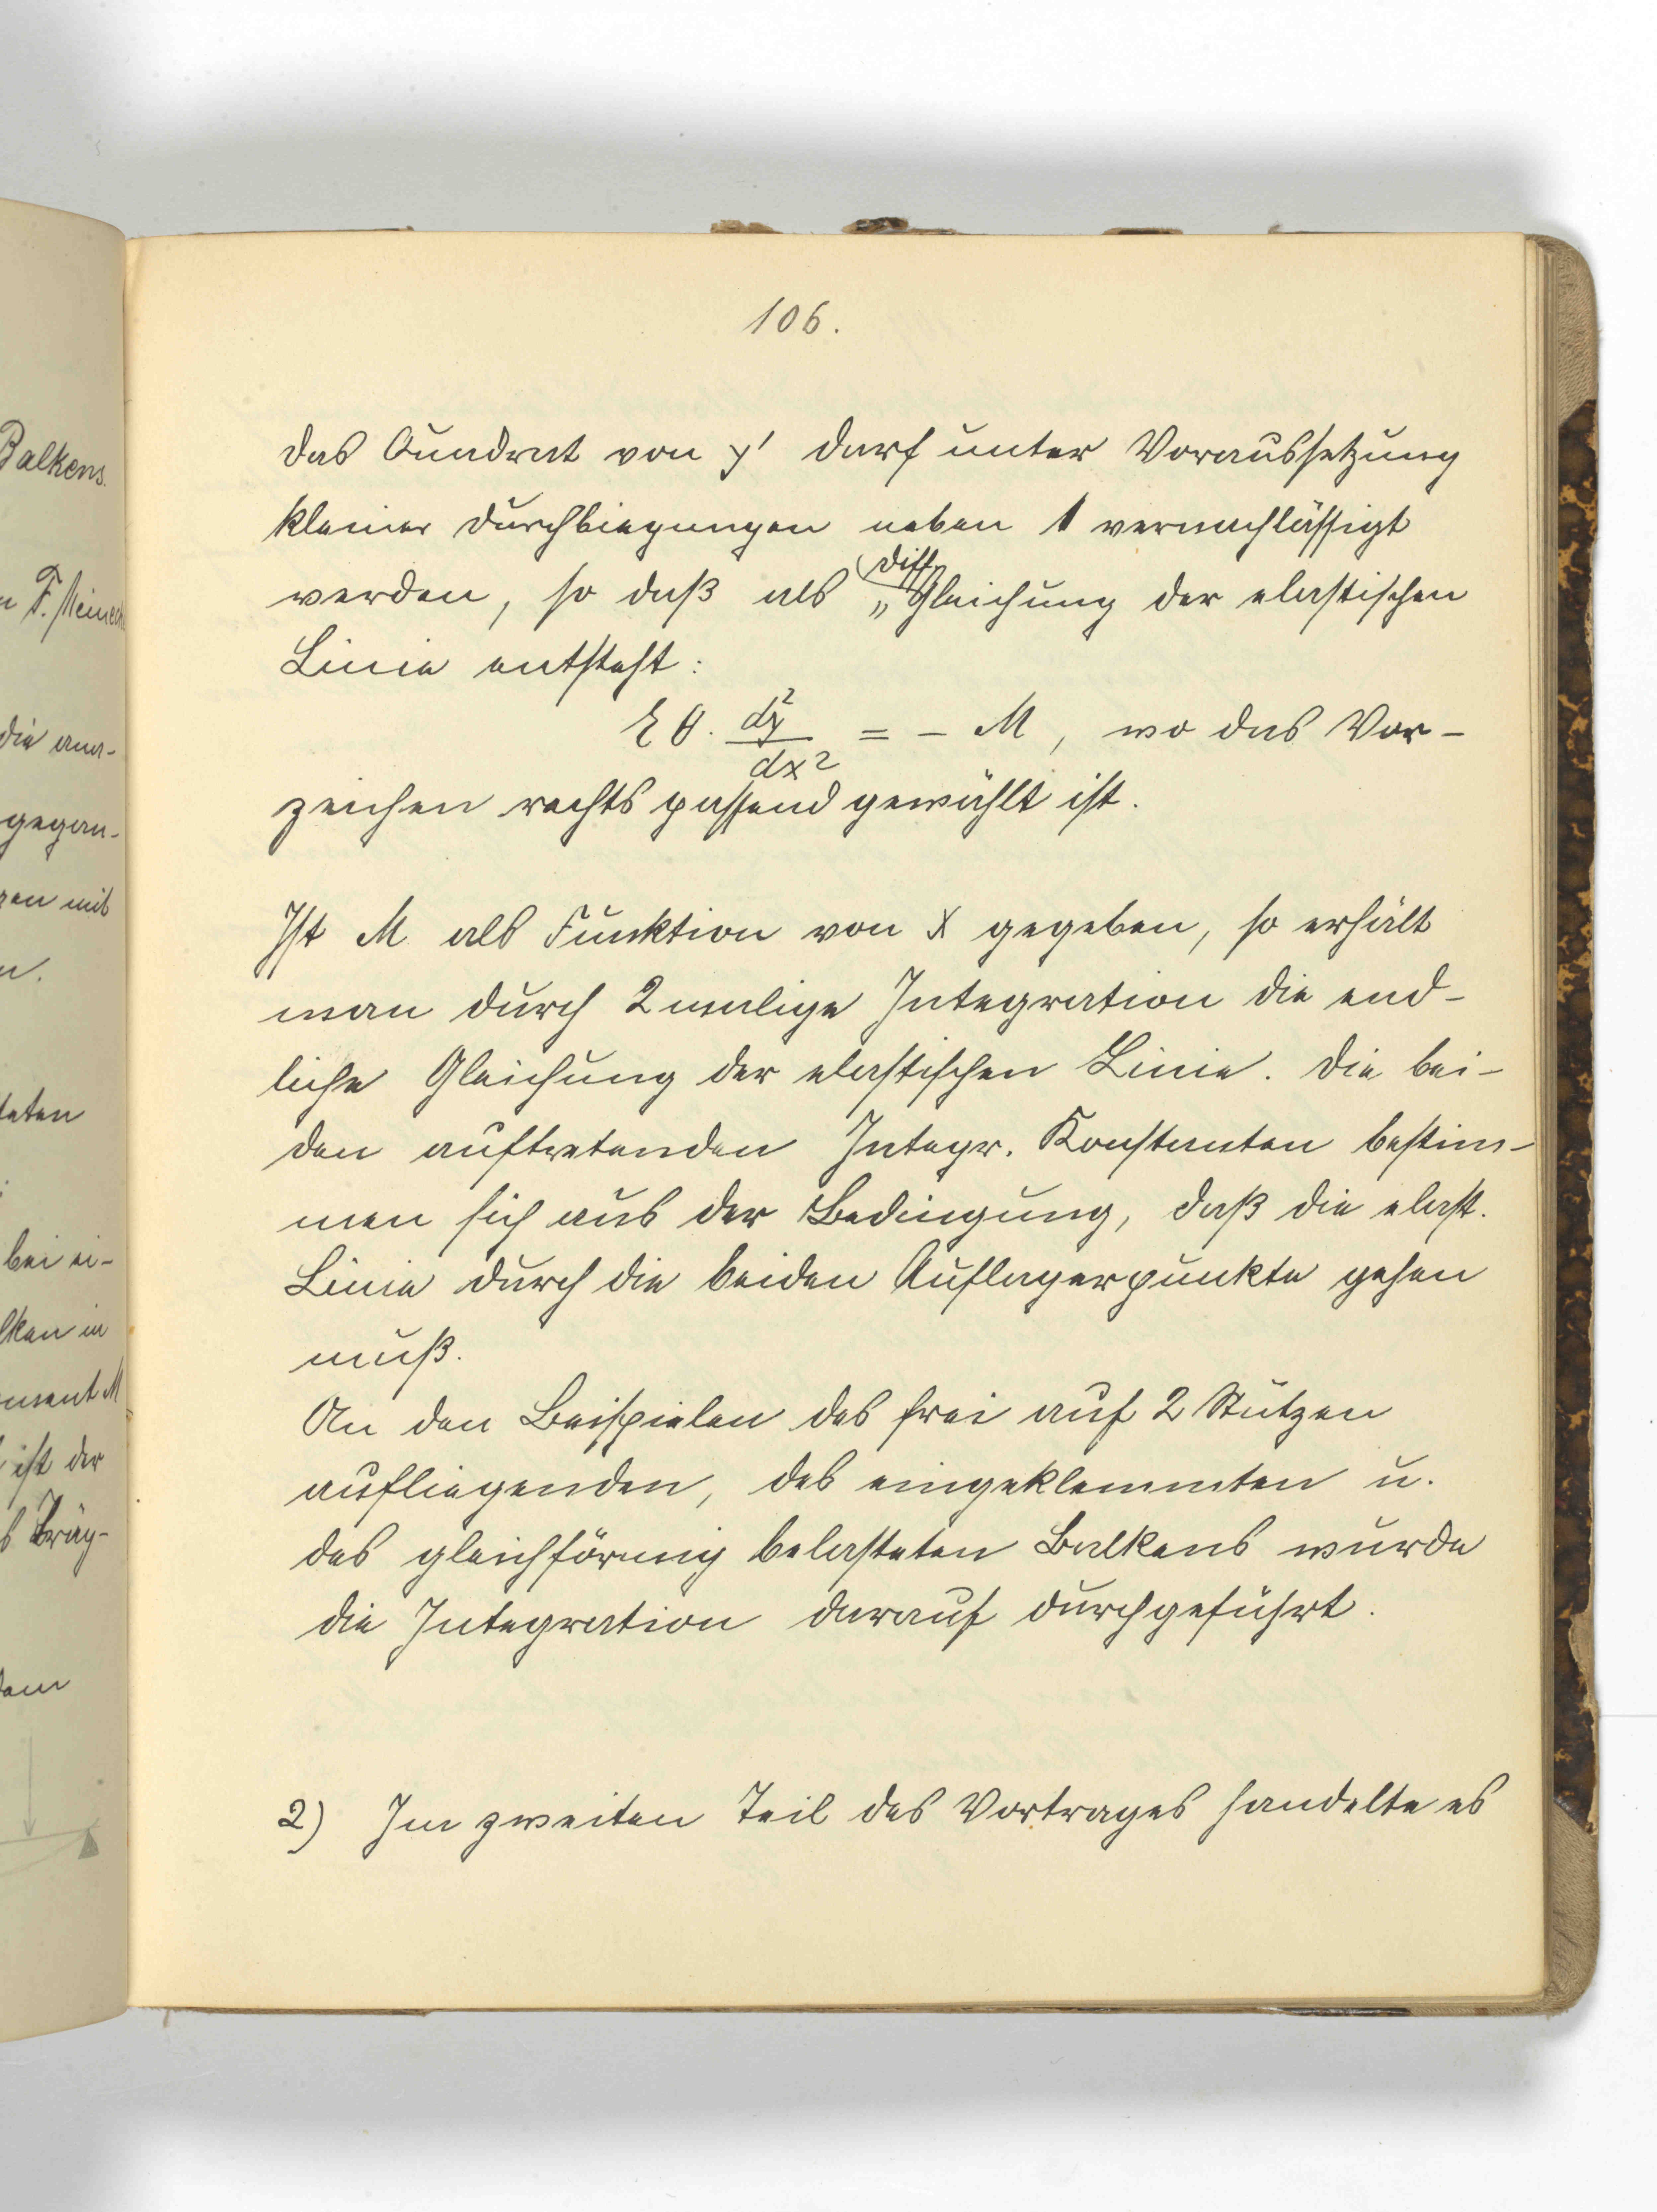 106.
Das Quadrat von y' darf unter Voraussetzung
kleiner Durchbiegungen neben 1 vernachlässigt
werden, so daß als „Diff. Gleichung der elastischen
Linie entsteht:
E θ. d²y/dx² = - M, wo das Vor-
zeichen rechts passend gewählt ist.
Ist M als Funktion von x gegeben, so erhält
man durch 2malige Integration die end-
liche Gleichung der elastischen Linie. Die bei-
den auftretenden Integr. Konstanten bestim-
men sich aus der Bedingung, daß die elast.
Linie durch die beiden Auflagerpunkte gehen
muß.
An den Beispielen des frei auf 2 Stützen
aufliegenden, des eingeklemmten u.
des gleichförmig belasteten Balkens wurde
die Integration darauf durchgeführt.
2) Im zweiten Teil des Vortrages handelte es